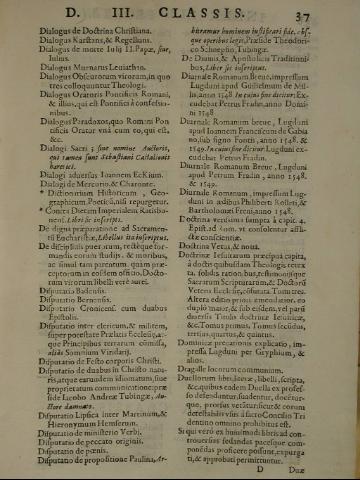 D. III. CLASSIS. 37
Dialogus de Doctrina Christiana.
Dialogus Karstans, & Regelians.
Dialogus de morte Iulij II. Papæ, siue,
Iulius.
Dialogus Murnarus Leuiathan.
Dialogus Obscurorum virorum, in quo
tres colloquuntur Theologi.
Dialogus Oratoris Pontificis Romani,
& illius, qui est Pontifici à confessio-
nibus.
Dialogus Paradoxos, quo Romani Pon
tificis Orator vnà cum eo, qui est,
&c.
Dialogi Sacri; siue nomine Auctoris,
qui tamen sunt Sebastiani Castalionis
hæretici.
Dialogi aduersus Ioannem Eckium.
Dialogi de Mercurio, & Charonte.
* Dictionarium Historicum, Geo-
graphicum, Poeticũ, nisi repurgetur.
* Contra Dietim Imperialem Ratisbo-
nensem. Libri sic inscripti.
De digna præparatione ad Sacramen-
tũ Eucharistiæ, Libellus ita inscriptus.
De disciplina puerorum, recteque for-
mandis eorum studijs, & moribus,
ac simul tam parentum, quàm præ-
ceptorum in eosdem officio. Docto-
rum virorum libelli verè aurei.
Disputatio Badensis.
Disputatio Bernensis.
Disputatio Cronicensi cum duabus
Epistolis.
Disputatio inter clericum, & militem,
super potestate Prælatis Ecclesiæ, at-
que Principibus terrarum cõmissa,
aliàs Somnium Viridarij.
Disputatio de Festo corporis Christi.
Disputatio de duabus in Christo natu-
ris, atque earundem idiomatum, siue
proprietatum communicatione præ
side Iacobo Andreæ Tubingæ, Au-
ctore damnato.
Disputatio Lipsica inter Martinum, &
Hieronymum Hemserum.
Disputatio de ministerio Verbi.
Disputatio de peccato originis.
Disputatio de pœnis.
Disputatio de propositione Paulina, Ar-
bitramur hominem iustificari fide, abs-
que operibus legis, Præside Theodori-
co Schnepfio, Tubingæ.
De Diuinis, & Apostolicis Traditioni-
bus, Liber sic inscriptus.
Diurnale Romanum Breue, impressum
Lugduni apud Guilielmum de Mil-
lis, anno 1548. in cuius fine dicitur, Ex-
cudebat Petrus Fradin, anno Domi-
ni 1548.
Diurnale Romanum breue, Lugduni
apud Ioannem Franciscum de Gabia
no, sub signo Fontis, anno 1548. &
1549. In cuius fine dicitur Lugduni ex-
cudebat Petrus Fradin.
Diurnale Romanum Breue, Lugduni
apud Petrum Fradin, anno 1548,
& 1549.
Diurnale Romanum, impressum Lug-
duni in ædibus Philiberti Rolleti, &
Bartholomæi Freni, anno 1548.
Doctrina verissima sumpta à capit. 4.
Epist. ad Rom. vt consolentur affli-
ctæ conscientiæ.
Doctrina Vetus, & noua.
Doctrinæ Iesuitarum præcipua capita,
à doctis quibusdam Theologis, retexta
Sacrarum Scripturarum, & Doctorũ
Veteris Ecclesiæ, cõfutata Tom. tres.
duersis Titulis doctrinæ Iesuiticæ,
&c. Tomus primus, Tomus secũdus,
tertius, quartus, & quintus.
Dominicæ precationis explicatio, im-
pressa Lugduni per Gryphium, &
alios.
Dragalle locorum communium.
Duellorum libri, literæ, libelli, scripta,
&c. quibus eadem Duella ex profes-
so defenduntur, suadentur, docẽtur-
que, prorsus vetãtur, sicut & eorum
detestabilis vsus à sacro Concilio Tri
dentino omnino prohibitus est.
Si qui verò ex huiusmodi libris ad con-
trouersias sedandas pacesque com-
ponẽdas proficere possint, expurga
ti, & approbati permittuntur.
D Duæ